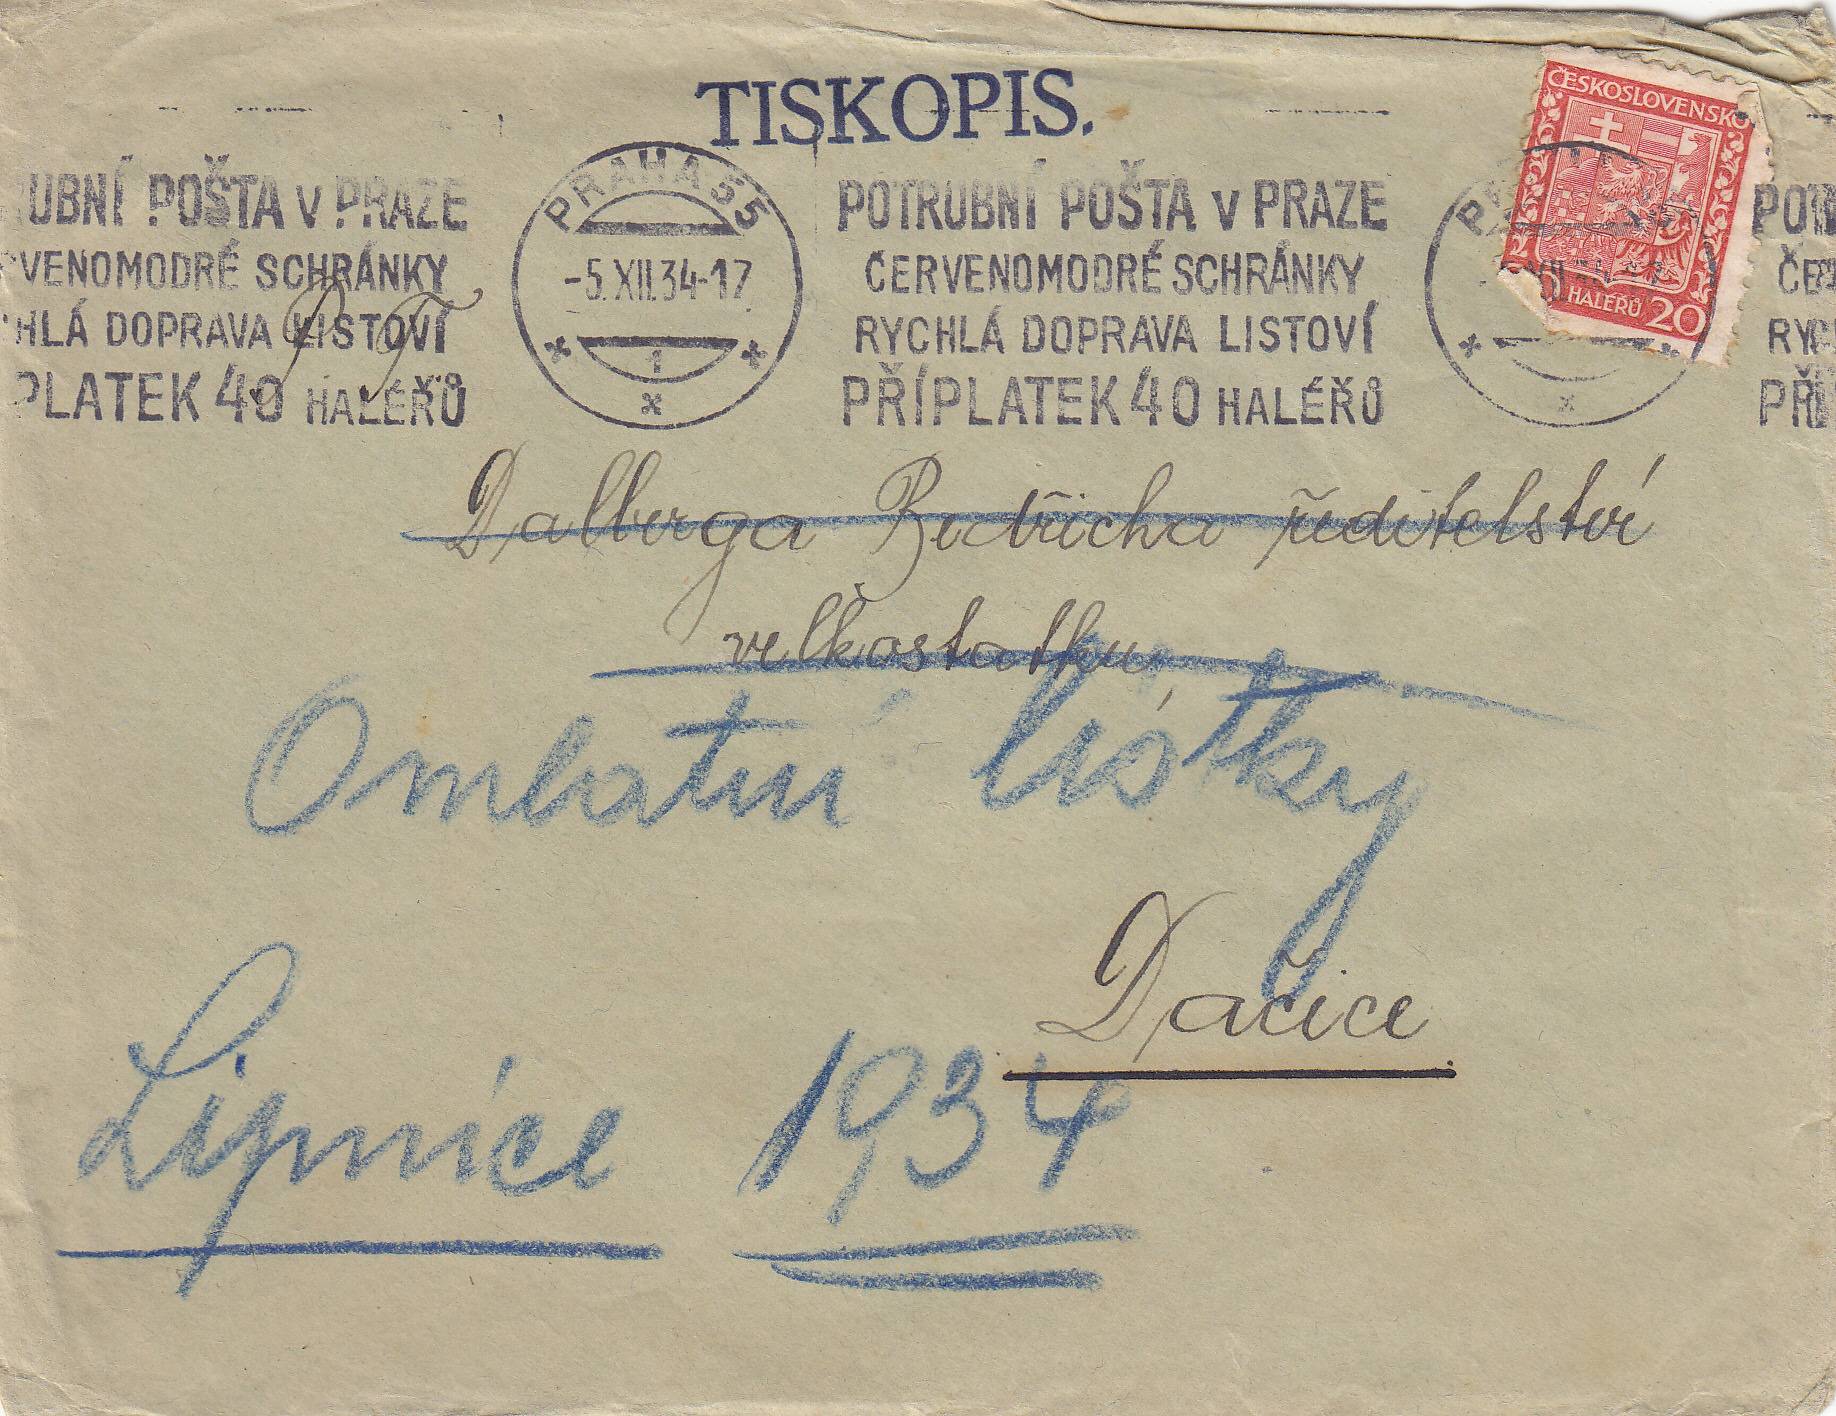 TISKOPIS.
ČESKOSLOVENSKO
HALÉŘŮ 20
RUBNÍ POŠTA V PRAZE
VENOMODRÉ SCHRÁNKY
CHLÁ DOPRAVA LISTOVÍ
PLATEK 40 HALÉŘŮ
P. T.
PRAHA 55
-5.XII.34-17
1
x
POTRUBNÍ POŠTA V PRAZE
ČERVENOMODRÉ SCHRÁNKY
RYCHLÁ DOPRAVA LISTOVÍ
PŘÍPLATEK 40 HALÉŘŮ
x
POT
ČE
RYC
PŘÍ
Dalberga Bedřicha ředitelství
velkostatku
Omlatní lístky
Dačice
Lipnice 1934